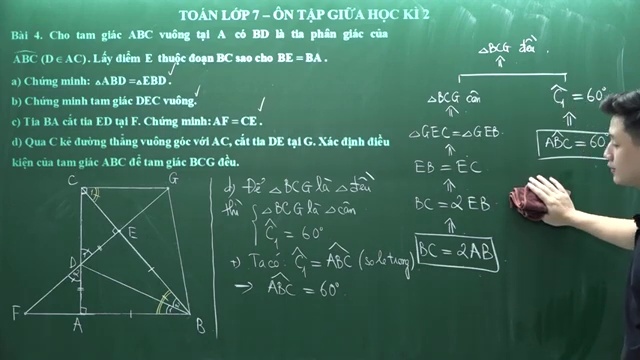 TOÁN LỚP 7 – ÔN TẬP GIỮA HỌC KÌ 2
Bài 4. Cho tam giác ABC vuông tại A có BD là tia phân giác của
ABC (D ∈ AC). Lấy điểm E thuộc đoạn BC sao cho BE = BA.
a) Chứng minh: △ABD = △EBD.
b) Chứng minh tam giác DEC vuông.
c) Tia BA cắt tia ED tại F. Chứng minh: AF = CE.
d) Qua C kẻ đường thẳng vuông góc với AC, cắt tia DE tại G. Xác định điều
kiện của tam giác ABC để tam giác BCG đều.
C
G
E
D
F
A
B
d) Để △BCG là △đều
thì { △BCG là △cân
Ĉ₁ = 60°
+) Ta có: Ĉ₁ = ABC (so le trong)
→ ABC = 60°
△BCG đều.
⇑
△BCG cân
⇑
△GEC = △GEB
⇑
EB = EC
⇑
BC = 2EB
⇑
BC = 2AB
⇑
Ĉ₁ = 60°
⇑
ABC = 60